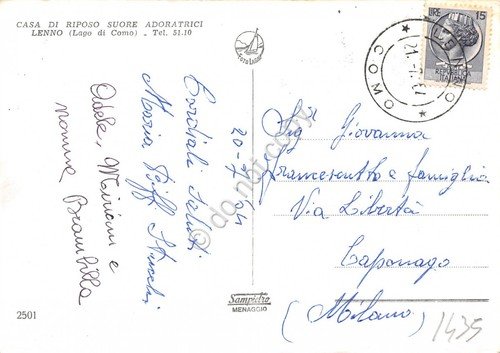 CASA DI RIPOSO SUORE ADORATRICI
LENNO (Lago di Como) - Tel. 51.10
LIRE 15
REPUBBLICA
ITALIANA
LENNO
COMO
21.-7.
20-7-
Cordiali Saluti
Maria
Adele, Miriam e
nonna Brambilla
Sig Giovanna
Francescutto e famiglia
Via Libertà
Caponago
(Milano)
1435
2501
Sampietro
MENAGGIO
do not copy